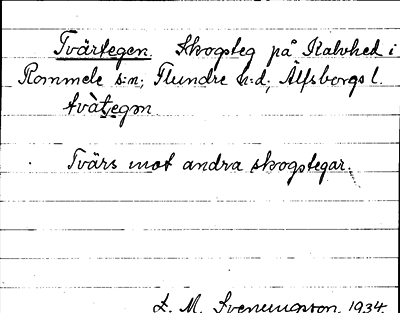 Tvärtegen. Skogsteg på Kalvhed i
Rommele s:n; Flundre h:d; Älfsborgs l.
tvàt̬egɔn
Tvärs mot andra skogstegar.
L. M. Svenungsson. 1934.